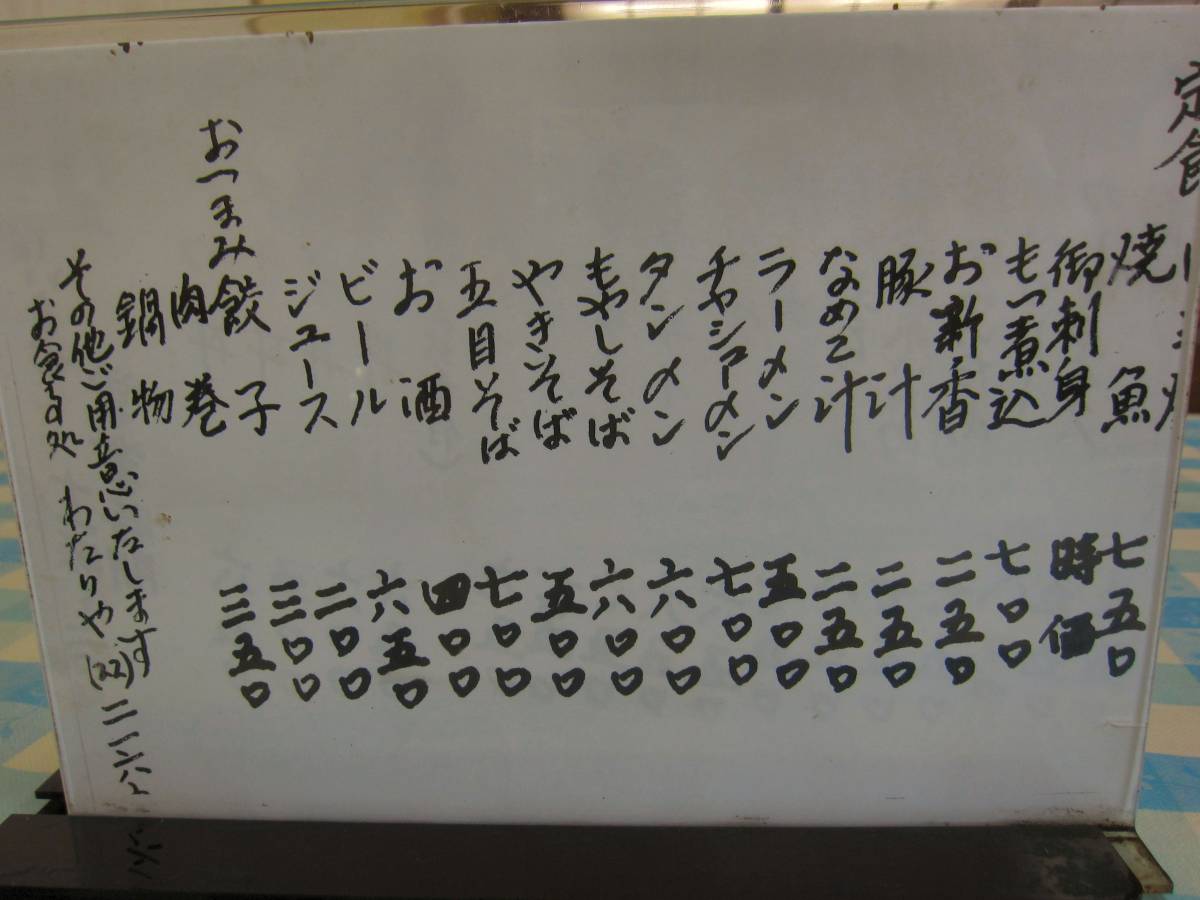 定食
焼魚 七五〇
御刺身 時価
もつ煮込 七〇〇
お新香 二五〇
豚汁 二五〇
なめこ汁 二五〇
ラーメン 五〇〇
チャシューメン 七〇〇
タンメン 六〇〇
もやしそば 六〇〇
やきそば 五〇〇
五目そば 七〇〇
お酒 四〇〇
ビール 六五〇
ジュース 二〇〇
おつまみ 餃子 三〇〇
肉巻 三五〇
鍋物
その他ご用意いたします
お食事処 わたりや